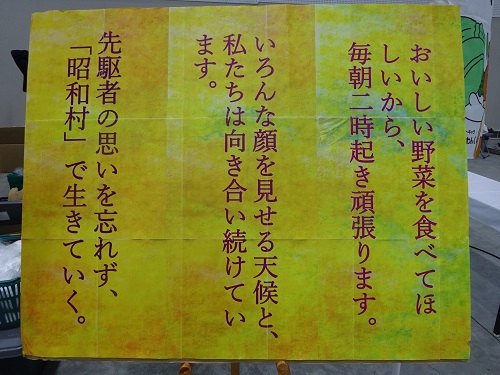 おいしい野菜を食べてほ
しいから、
毎朝二時起き頑張ります。
いろんな顔を見せる天候と、
私たちは向き合い続けてい
ます。
先駆者の思いを忘れず、
「昭和村」で生きていく。